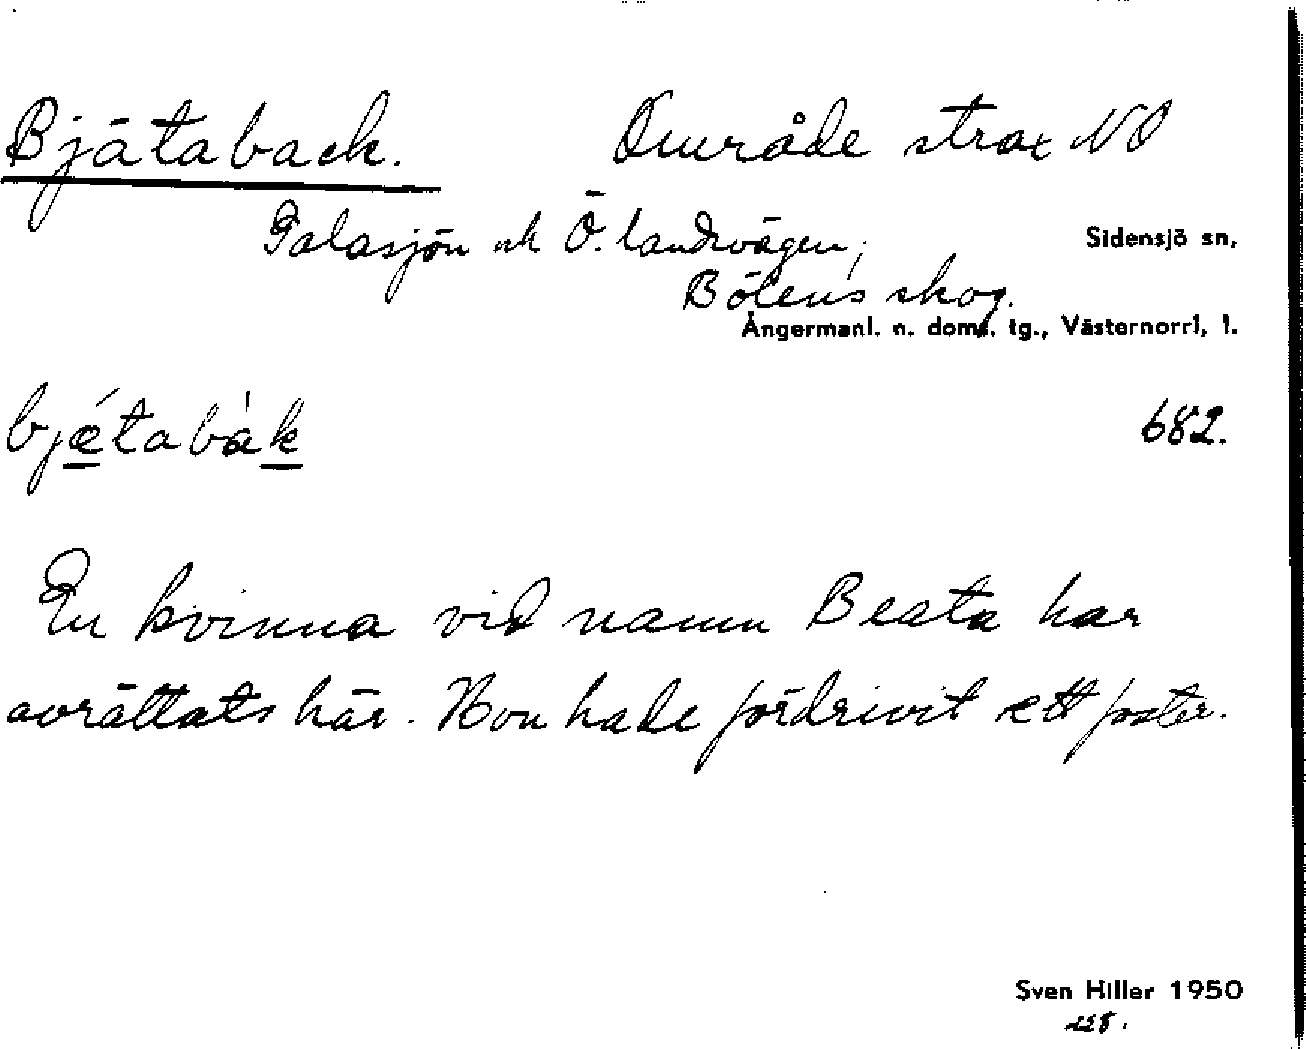 Bjätaback. Område strax NO
Galasjön och Ö. landsvägen;
Sidensjö sn,
Bölens skog.
Ångermanl. n. doms. tg., Västernorrl. l.
bjétabàk
682.
En kvinna vid namn Beata har
avrättats här. Hon hade fördrivit ett foster.
Sven Hiller 1950